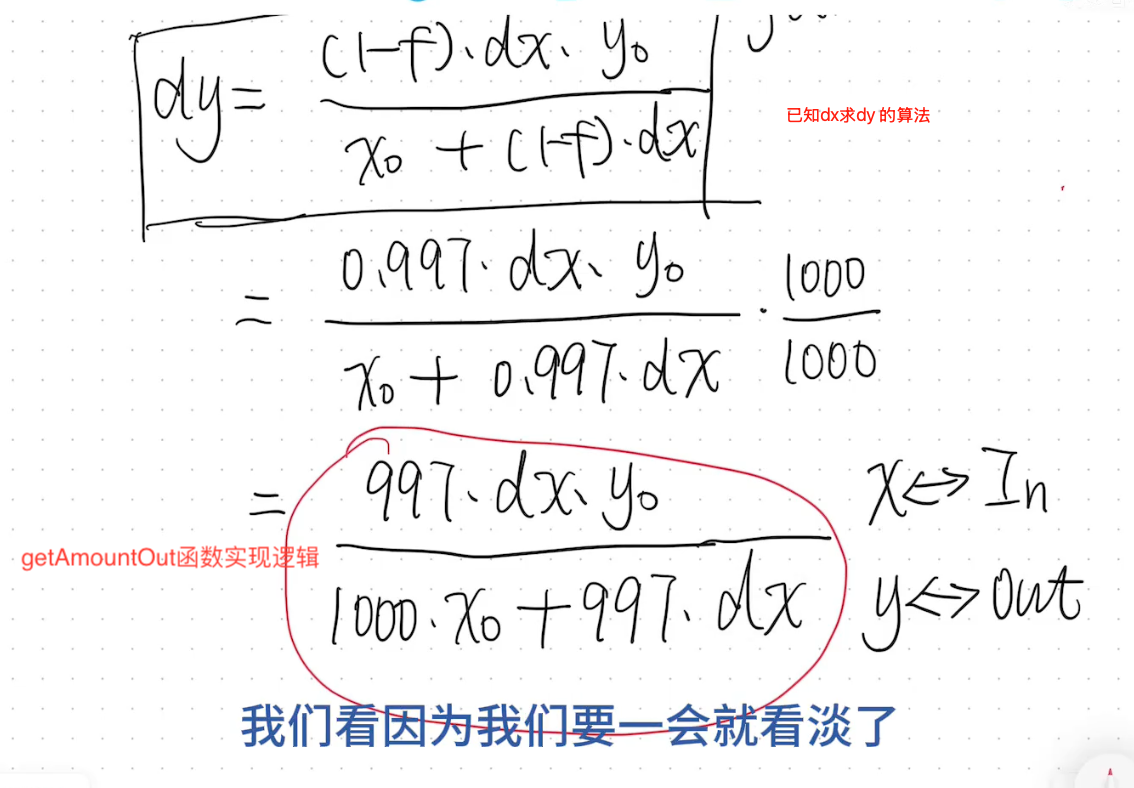 dy = (1-f)·dx·y₀ / x₀ + (1-f)·dx
已知dx求dy 的算法
= 0.997·dx·y₀ / x₀ + 0.997·dx · 1000 / 1000
= 997·dx·y₀ / 1000·x₀ + 997·dx
x⇔In
getAmountOut函数实现逻辑
y⇔Out
我们看因为我们要一会就看淡了